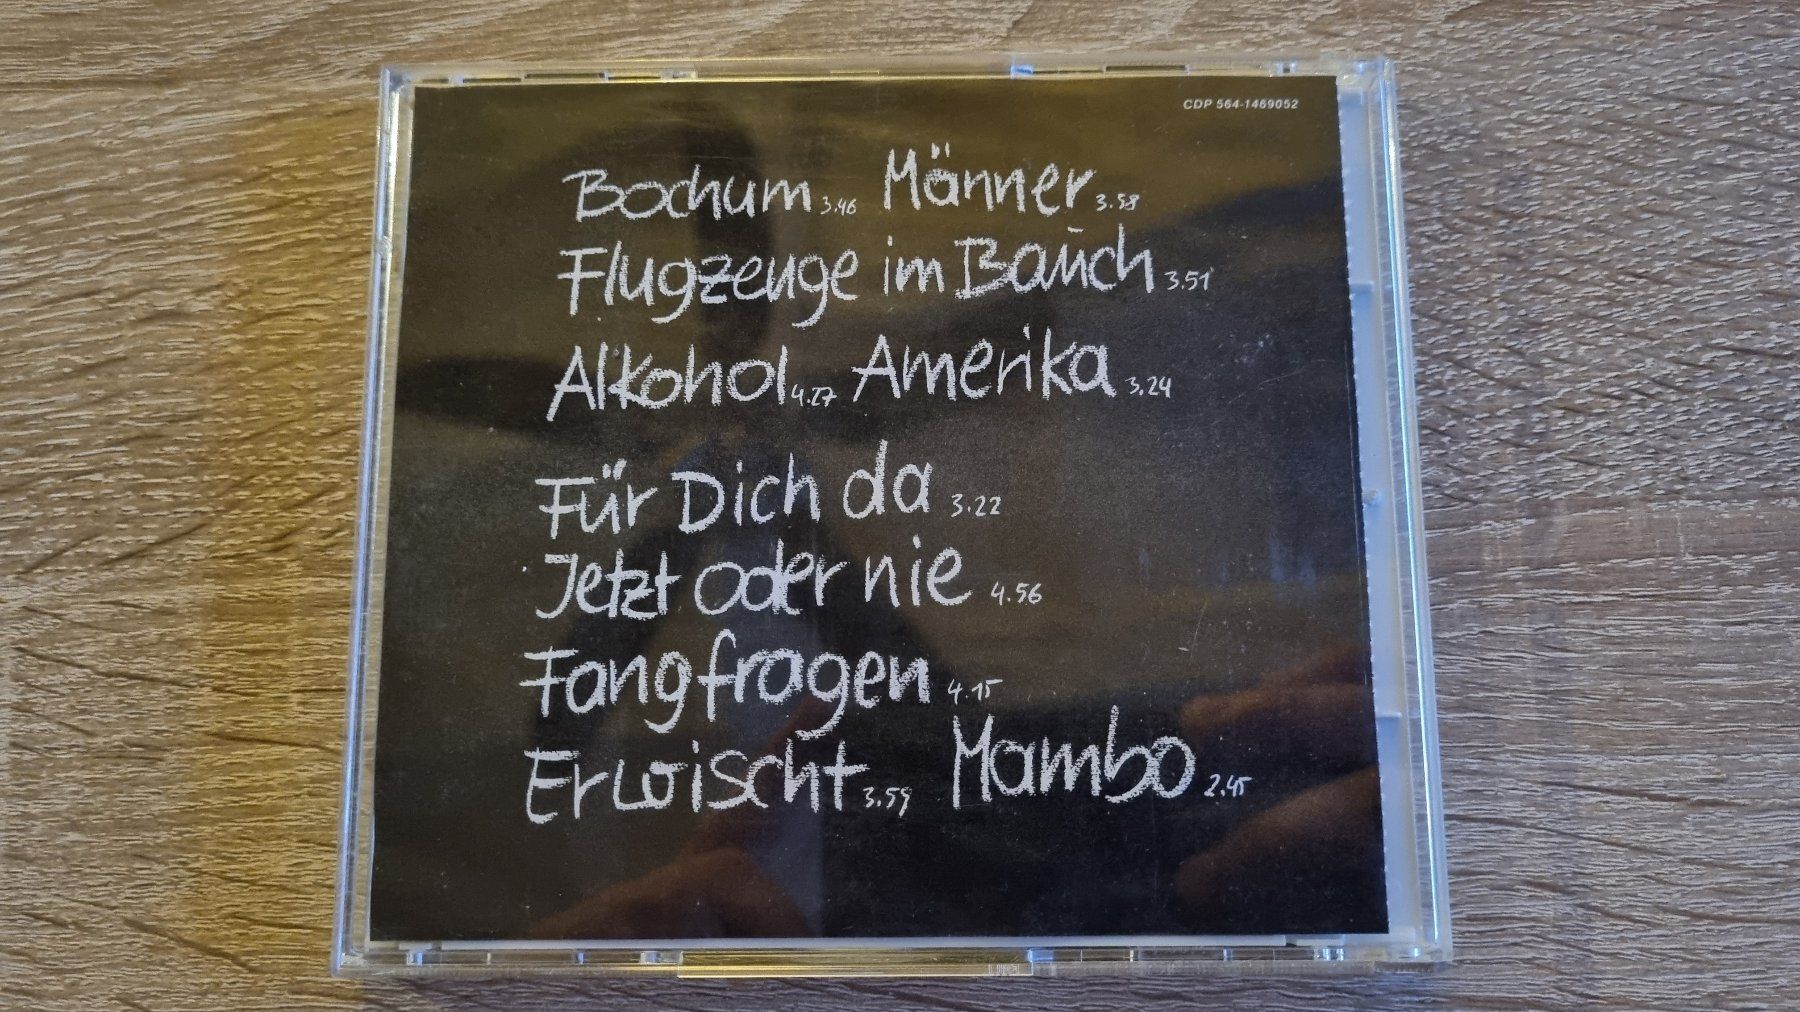 CDP 564-1469052
Bochum 3.46 Männer 3.58
Flugzeuge im Bauch 3.51
Alkohol 4.27 Amerika 3.24
Für Dich da 3.22
Jetzt oder nie 4.56
Fangfragen 4.15
Erwischt 3.59 Mambo 2.45